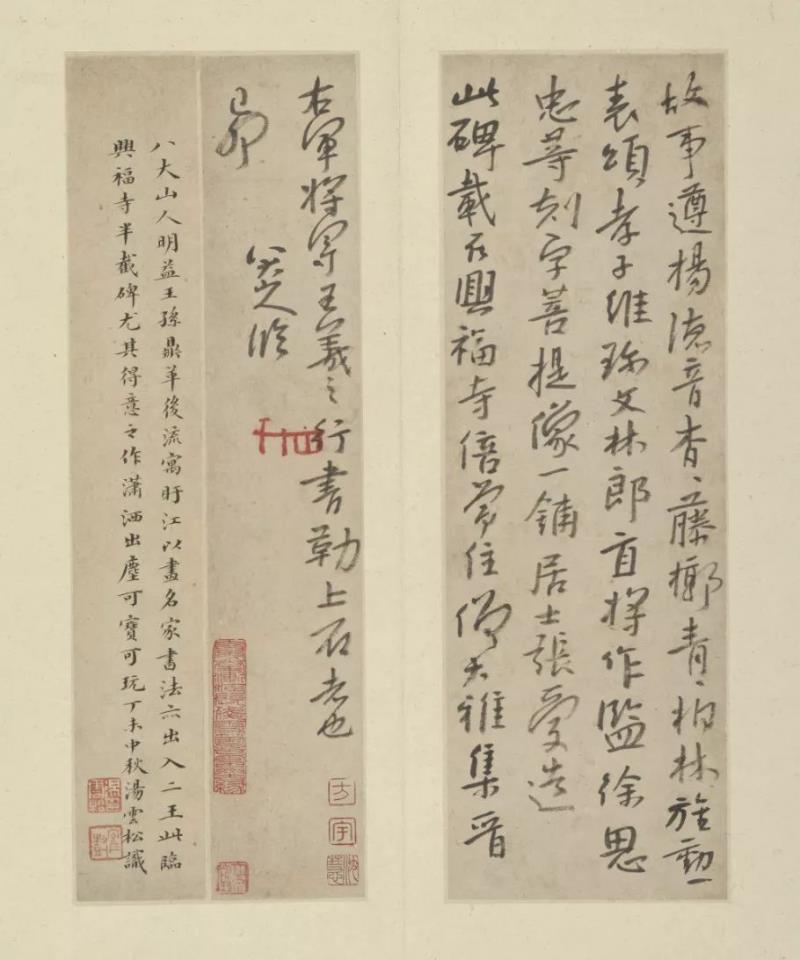 故事遵楊德音杳〻藤槨青〻柏林旌勳
表頌孝子維珎文林郎直將作監徐思
忠等刻字菩提像一鋪居士張愛造
此碑載在興福寺倍常住僧大雅集晉
右軍將軍王羲之行書勒上石者也
己卯
八大山人臨
方宇
八大山人明益王孫鼎革後流寓盱江以畫名家書法亦出入二王此臨
興福寺半截碑尤其得意之作瀟洒出塵可寶可玩丁未中秋湯雲松識